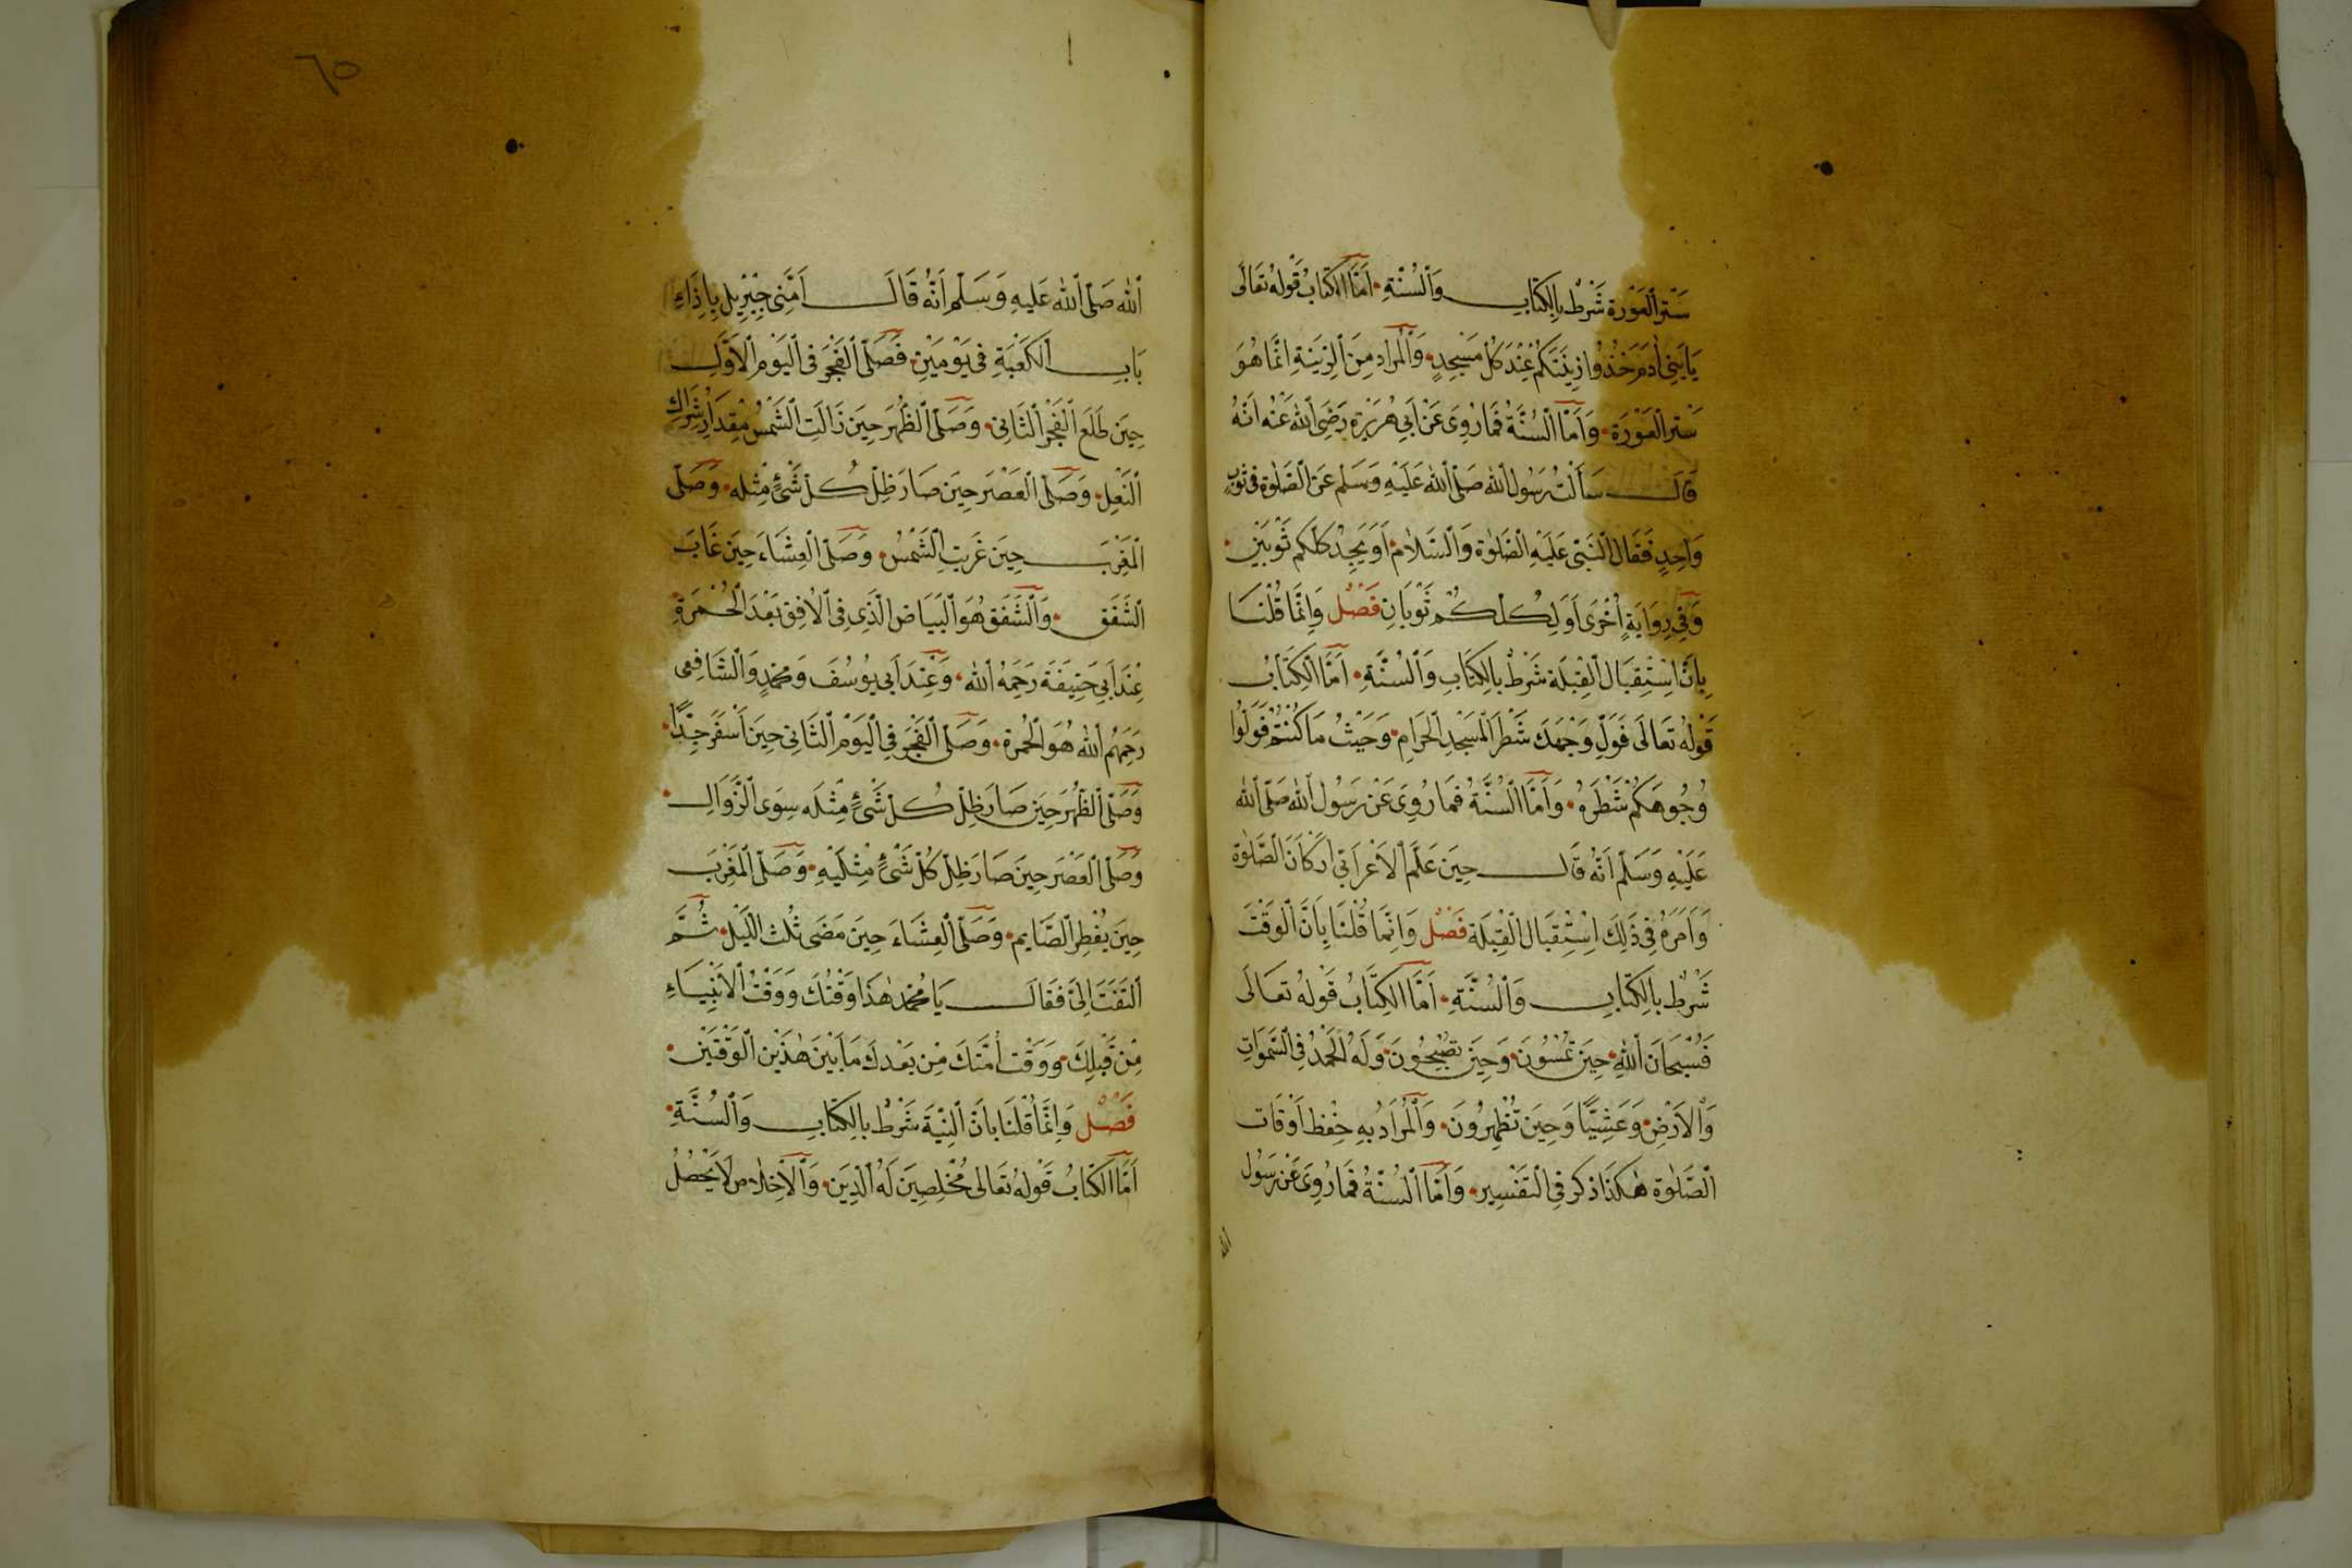 سَتْرَ الْعَوْرَةِ شَرْطٌ بِالْكِتَابِ وَالسُّنَّةِ. اَمَّا الْكِتَابُ قَوْلُهُ تَعَالَى
يَابَنِي اٰدَمَ خُذُوا زِينَتَكُمْ عِنْدَ كُلِّ مَسْجِدٍ. وَالْمُرَادُ مِنَ الزِّينَةِ اِنَّمَا هُوَ
سَتْرُ الْعَوْرَةِ. وَاَمَّا السُّنَّةُ فَمَا رُوِىَ عَنْ اَبِي هُرَيْرَةَ رَضِىَ اللهُ عَنْهُ اَنَّهُ
قَالَ سَاَلْتُ رَسُولَ اللهِ صَلَّى اللهُ عَلَيْهِ وَسَلَّمَ عَنِ الصَّلٰوةِ فِي ثَوْبٍ
وَاحِدٍ فَقَالَ النَّبِىُّ عَلَيْهِ الصَّلٰوةُ وَالسَّلَامُ. اَوَ يَجِدُ كُلُّكُمْ ثَوْبَيْنِ.
وَفِي رِوَايَةٍ اُخْرَى اَوَ لِكُلِّكُمْ ثَوْبَانِ فَصْلٌ وَاِنَّمَا قُلْنَا
بِاَنَّ اسْتِقْبَالَ الْقِبْلَةِ شَرْطٌ بِالْكِتَابِ وَالسُّنَّةِ. اَمَّا الْكِتَابُ
قَوْلُهُ تَعَالَى فَوَلِّ وَجْهَكَ شَطْرَ الْمَسْجِدِ الْحَرَامِ. وَحَيْثُ مَا كُنْتُمْ فَوَلُّوا
وُجُوهَكُمْ شَطْرَهُ. وَاَمَّا السُّنَّةُ فَمَا رُوِىَ عَنْ رَسُولِ اللهِ صَلَّى اللهُ
عَلَيْهِ وَسَلَّمَ اَنَّهُ قَالَ حِينَ عَلَّمَ الْاَعْرَابِيَّ اَرْكَانَ الصَّلٰوةِ
وَاَمَرَهُ فِي ذَلِكَ اِسْتِقْبَالَ الْقِبْلَةِ فَصْلٌ وَاِنَّمَا قُلْنَا بِاَنَّ الْوَقْتَ
شَرْطٌ بِالْكِتَابِ وَالسُّنَّةِ. اَمَّا الْكِتَابُ قَوْلُهُ تَعَالَى
فَسُبْحَانَ اللهِ. حِينَ تُمْسُونَ. وَحِينَ تُصْبِحُونَ. وَلَهُ الْحَمْدُ فِي السَّمٰوَاتِ
وَالْاَرْضِ. وَعَشِيًّا وَحِينَ تُظْهِرُونَ. وَالْمُرَادُ بِهِ حِفْظُ اَوْقَاتِ
الصَّلٰوةِ هٰكَذَا ذُكِرَ فِي التَّفْسِيرِ. وَاَمَّا السُّنَّةُ فَمَا رُوِىَ عَنْ رَسُولِ
الله
٦٥
اللهِ صَلَّى اللهُ عَلَيْهِ وَسَلَّمَ اَنَّهُ قَالَ اَمَّنِي جِبْرِيلُ بِاِذَاءِ
بَابِ الْكَعْبَةِ فِي يَوْمَيْنِ. فَصَلَّى الْفَجْرَ فِي الْيَوْمِ الْاَوَّلِ
حِينَ طَلَعَ الْفَجْرُ الثَّانِي. وَصَلَّى الظُّهْرَ حِينَ زَالَتِ الشَّمْسُ مِقْدَارَ شِرَاكِ
النَّعْلِ. وَصَلَّى الْعَصْرَ حِينَ صَارَ ظِلُّ كُلِّ شَىْءٍ مِثْلَهُ. وَصَلَّى
الْمَغْرِبَ حِينَ غَرَبَتِ الشَّمْسُ. وَصَلَّى الْعِشَاءَ حِينَ غَابَ
الشَّفَقُ. وَالشَّفَقُ هُوَ الْبَيَاضُ الَّذِي فِي الْاُفُقِ بَعْدَ الْحُمْرَةِ
عِنْدَ اَبِي حَنِيفَةَ رَحِمَهُ اللهُ. وَعِنْدَ اَبِي يُوسُفَ وَمُحَمَّدٍ وَالشَّافِعِي
رَحِمَهُمُ اللهُ هُوَ الْحُمْرَةُ. وَصَلَّى الْفَجْرَ فِي الْيَوْمِ الثَّانِي حِينَ اَسْفَرَ جِدًّا.
وَصَلَّى الظُّهْرَ حِينَ صَارَ ظِلُّ كُلِّ شَىْءٍ مِثْلَهُ سِوَى الزَّوَالِ.
وَصَلَّى الْعَصْرَ حِينَ صَارَ ظِلُّ كُلِّ شَىْءٍ مِثْلَيْهِ. وَصَلَّى الْمَغْرِبَ
حِينَ يُفْطِرُ الصَّايِمُ. وَصَلَّى الْعِشَاءَ حِينَ مَضَى ثُلُثُ اللَّيْلِ. ثُمَّ
الْتَفَتَ اِلَىَّ فَقَالَ يَا مُحَمَّدُ هٰذَا وَقْتُكَ وَوَقْتُ الْاَنْبِيَاءِ
مِنْ قَبْلِكَ. وَوَقْتُ اُمَّتِكَ مِنْ بَعْدِكَ مَا بَيْنَ هٰذَيْنِ الْوَقْتَيْنِ.
فَصْلٌ وَاِنَّمَا قُلْنَا بِاَنَّ النِّيَّةَ شَرْطٌ بِالْكِتَابِ وَالسُّنَّةِ.
اَمَّا الْكِتَابُ قَوْلُهُ تَعَالَى مُخْلِصِينَ لَهُ الدِّينَ. وَالْاِخْلَاصُ لَا يَحْصُلُ